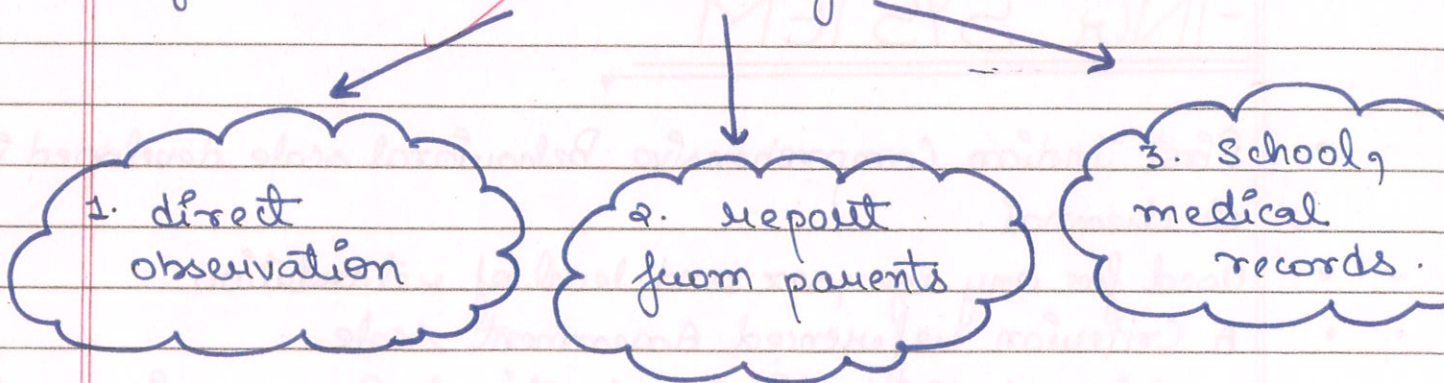 1. direct
observation
2. report
from parents
3. School,
medical
records.